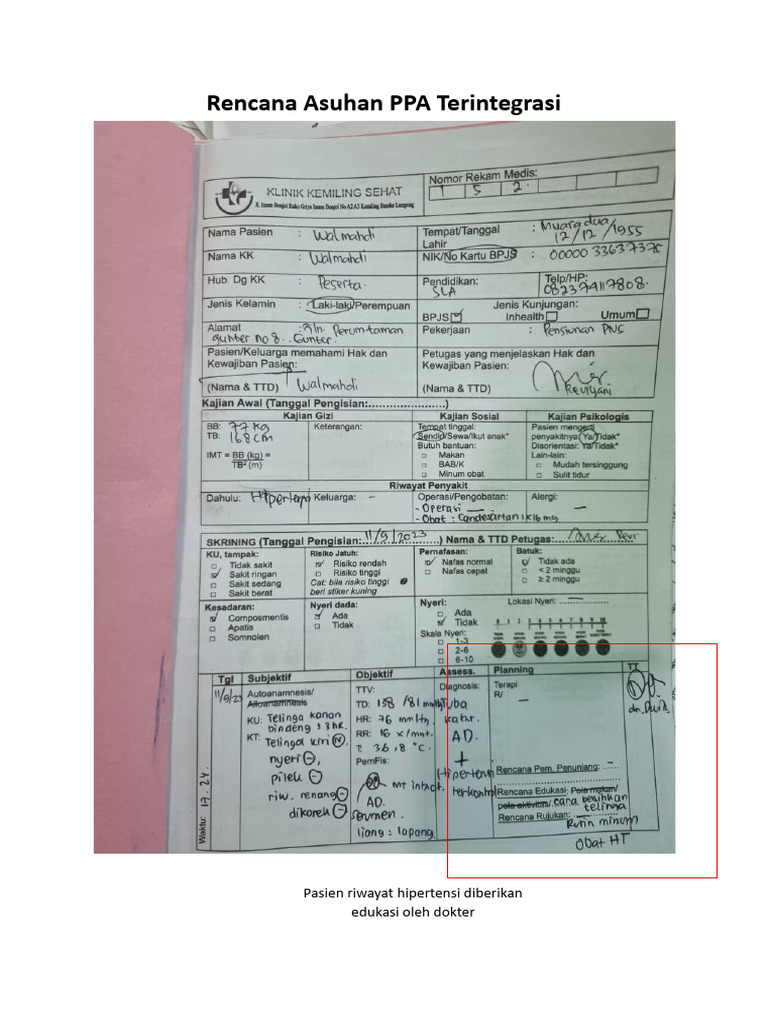 Rencana Asuhan PPA Terintegrasi
KLINIK KEMILING SEHAT
Jl. Imam Bonjol Ruko Griya Imam Bonjol No A2 A3 Kemiling Bandar Lampung
Nomor Rekam Medis:
1 5 2.
Nama Pasien : Walmahdi
Tempat/Tanggal Lahir : Muaradua 12/12/1955
Nama KK : Walmahdi
NIK/No Kartu BPJS : 00000 33637375
Hub. Dg KK : Peserta
Pendidikan: SLA
Telp/HP: 082374117808.
Jenis Kelamin : Laki-laki/Perempuan
Jenis Kunjungan:
BPJS Inhealth Umum
Alamat : Jln. Perumtaman gunter no 8.. Gunter.
Pekerjaan : Pensiunan PNS
Pasien/Keluarga memahami Hak dan Kewajiban Pasien:
Petugas yang menjelaskan Hak dan Kewajiban Pasien:
(Nama & TTD) Walmahdi
(Nama & TTD)
Kajian Awal (Tanggal Pengisian:......................)
Kajian Gizi
Kajian Sosial
Kajian Psikologis
BB: 77 kg
TB: 168 cm
IMT = BB (kg) =
TB² (m)
Keterangan:
Tempat tinggal:
Sendiri/Sewa/Ikut anak*
Butuh bantuan:
Makan
BAB/K
Minum obat
Pasien mengerti
penyakitnya: Ya/Tidak*
Disorientasi: Ya/Tidak*
Lain-lain:
Mudah tersinggung
Sulit tidur
Riwayat Penyakit
Dahulu: Hipertensi
Keluarga: -
Operasi/Pengobatan:
- Operasi —
- Obat : Candesartan 1x16 mg
Alergi: —
SKRINING (Tanggal Pengisian: 11/9/2023) Nama & TTD Petugas:
KU, tampak:
Tidak sakit
Sakit ringan
Sakit sedang
Sakit berat
Risiko Jatuh:
Risiko rendah
Risiko tinggi
Cat: bila risiko tinggi
beri stiker kuning
Pernafasan:
Nafas normal
Nafas cepat
Batuk:
Tidak ada
< 2 minggu
≥ 2 minggu
Kesadaran:
Composmentis
Apatis
Somnolen
Nyeri dada:
Ada
Tidak
Nyeri:
Ada
Tidak
Skala Nyeri:
1-3
2-6
6-10
Lokasi Nyeri: —
0 1 2 3 4 5 6 7 8 9 10
Tgl
Subjektif
Objektif
Assess.
Planning
TT
11/9/23
Waktu: 17.24
Autoanamnesis/
Alloanamnesis
KU: Telinga kanan
bindeng ± 3 hr.
KT: Telinga kiri (N),
nyeri (-),
pilek (-)
riw. renang (-)
dikorek (-)
TTV:
TD: 158 /81 mmHg
HR: 76 mmHg.
RR: 16 x/mnt.
T: 36,8 °C.
PemFis:
MT intact.
AD.
Serumen
liang : lapang
Diagnosis:
Tuba
katar.
AD.
+
Hipertensi
terkontrol
Terapi
R/
—
Rencana Pem. Penunjang: -
Rencana Edukasi: Pola makan/
pola aktivitas/ cara bersihkan
telinga
Rencana Rujukan: —
Rutin minum
Obat HT
Pasien riwayat hipertensi diberikan
edukasi oleh dokter